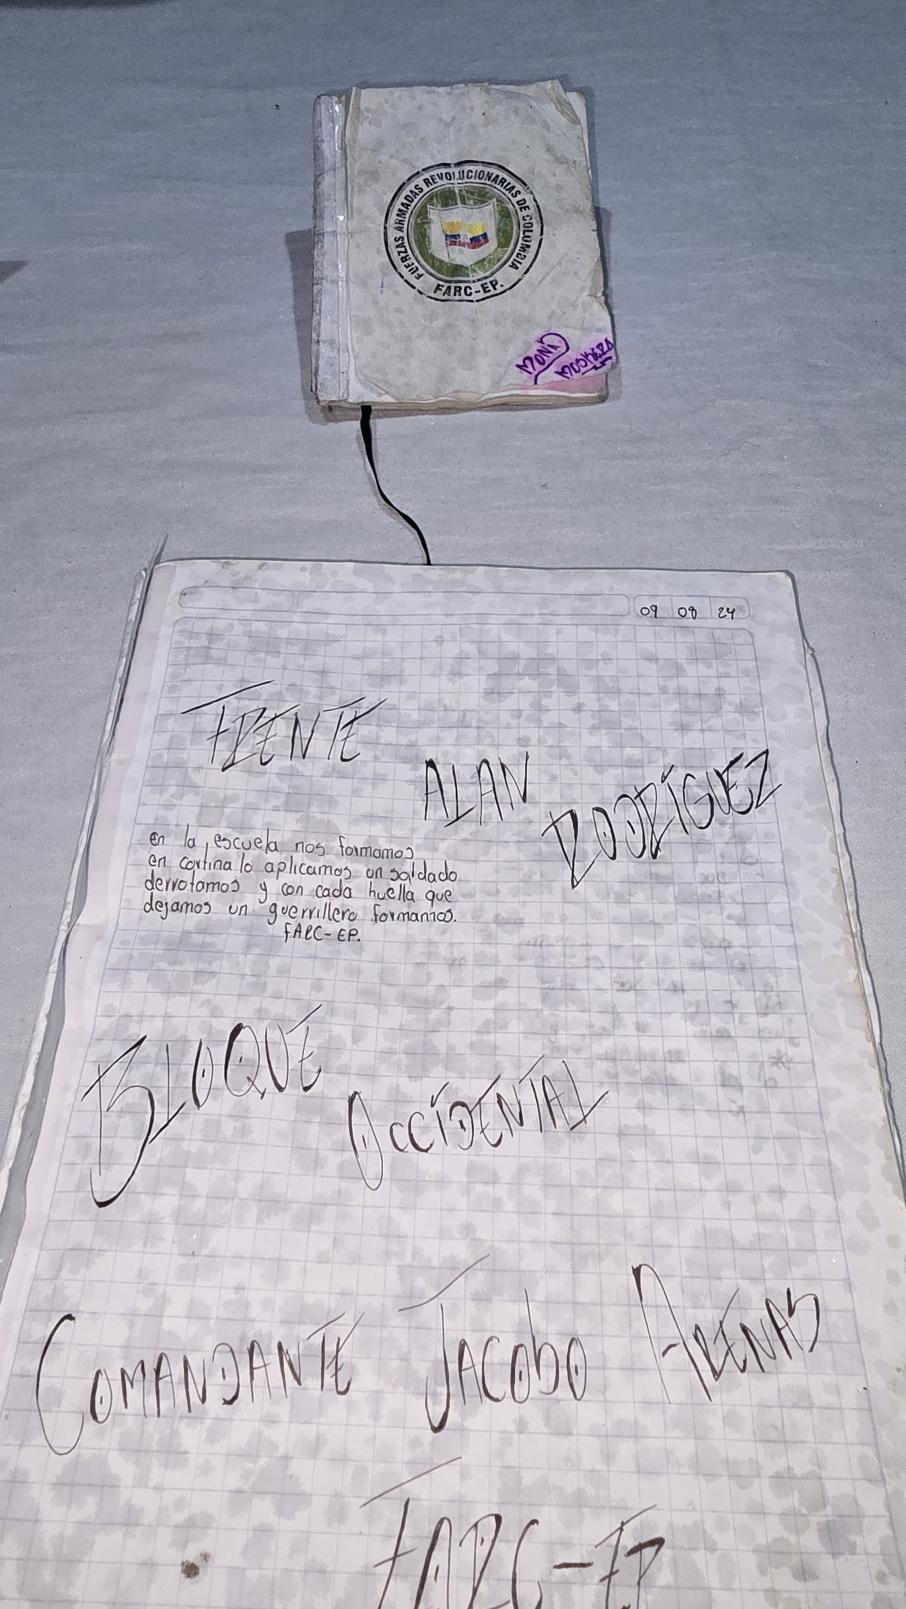 FUERZAS ARMADAS REVOLUCIONARIAS DE COLOMBIA
FARC-EP.
MONO
MOSKERA
09 08 24
FRENTE
ALAN
RODRÍGUEZ
en la escuela nos formamos
en cortina lo aplicamos un soldado
derrotamos y con cada huella que
dejamos un guerrillero formamos.
FARC-EP.
BLOQUE
OCCÍDENTAL
COMANDANTE JACOBO ARENAS
FARC-EP